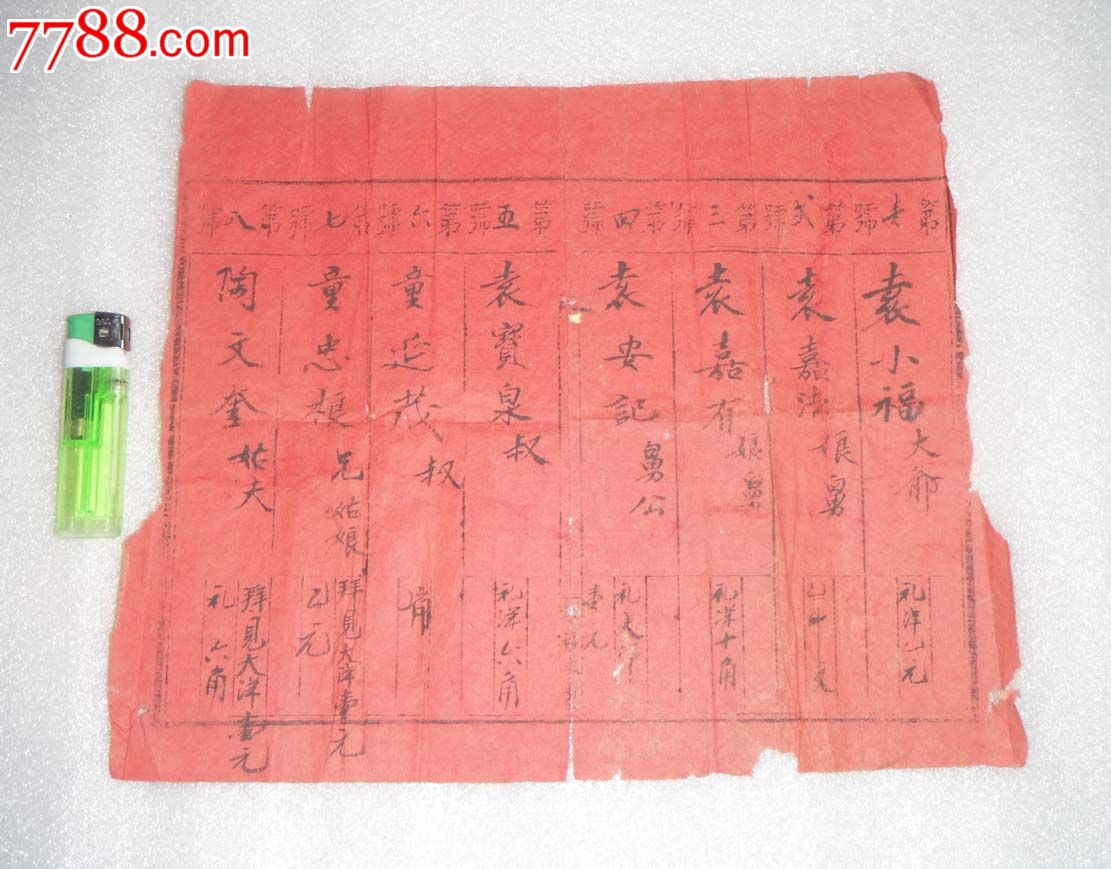 7788.com
第壹號
袁小福大爺
礼洋乙元
第弍號
袁嘉 娘舅
第三號
袁嘉有娘舅
礼洋十角
第四號
袁安記舅公
礼大洋
壹元
第五號
袁寶泉叔
礼洋六角
第六號
童近茂叔
第七號
童忠根兄姑娘
拜見大洋壹元
乙元
第八號
陶文奎姑夫
拜見大洋壹元
礼六角